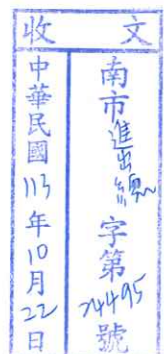 收文
南市進出總字第24495號
中華民國113年10月22日